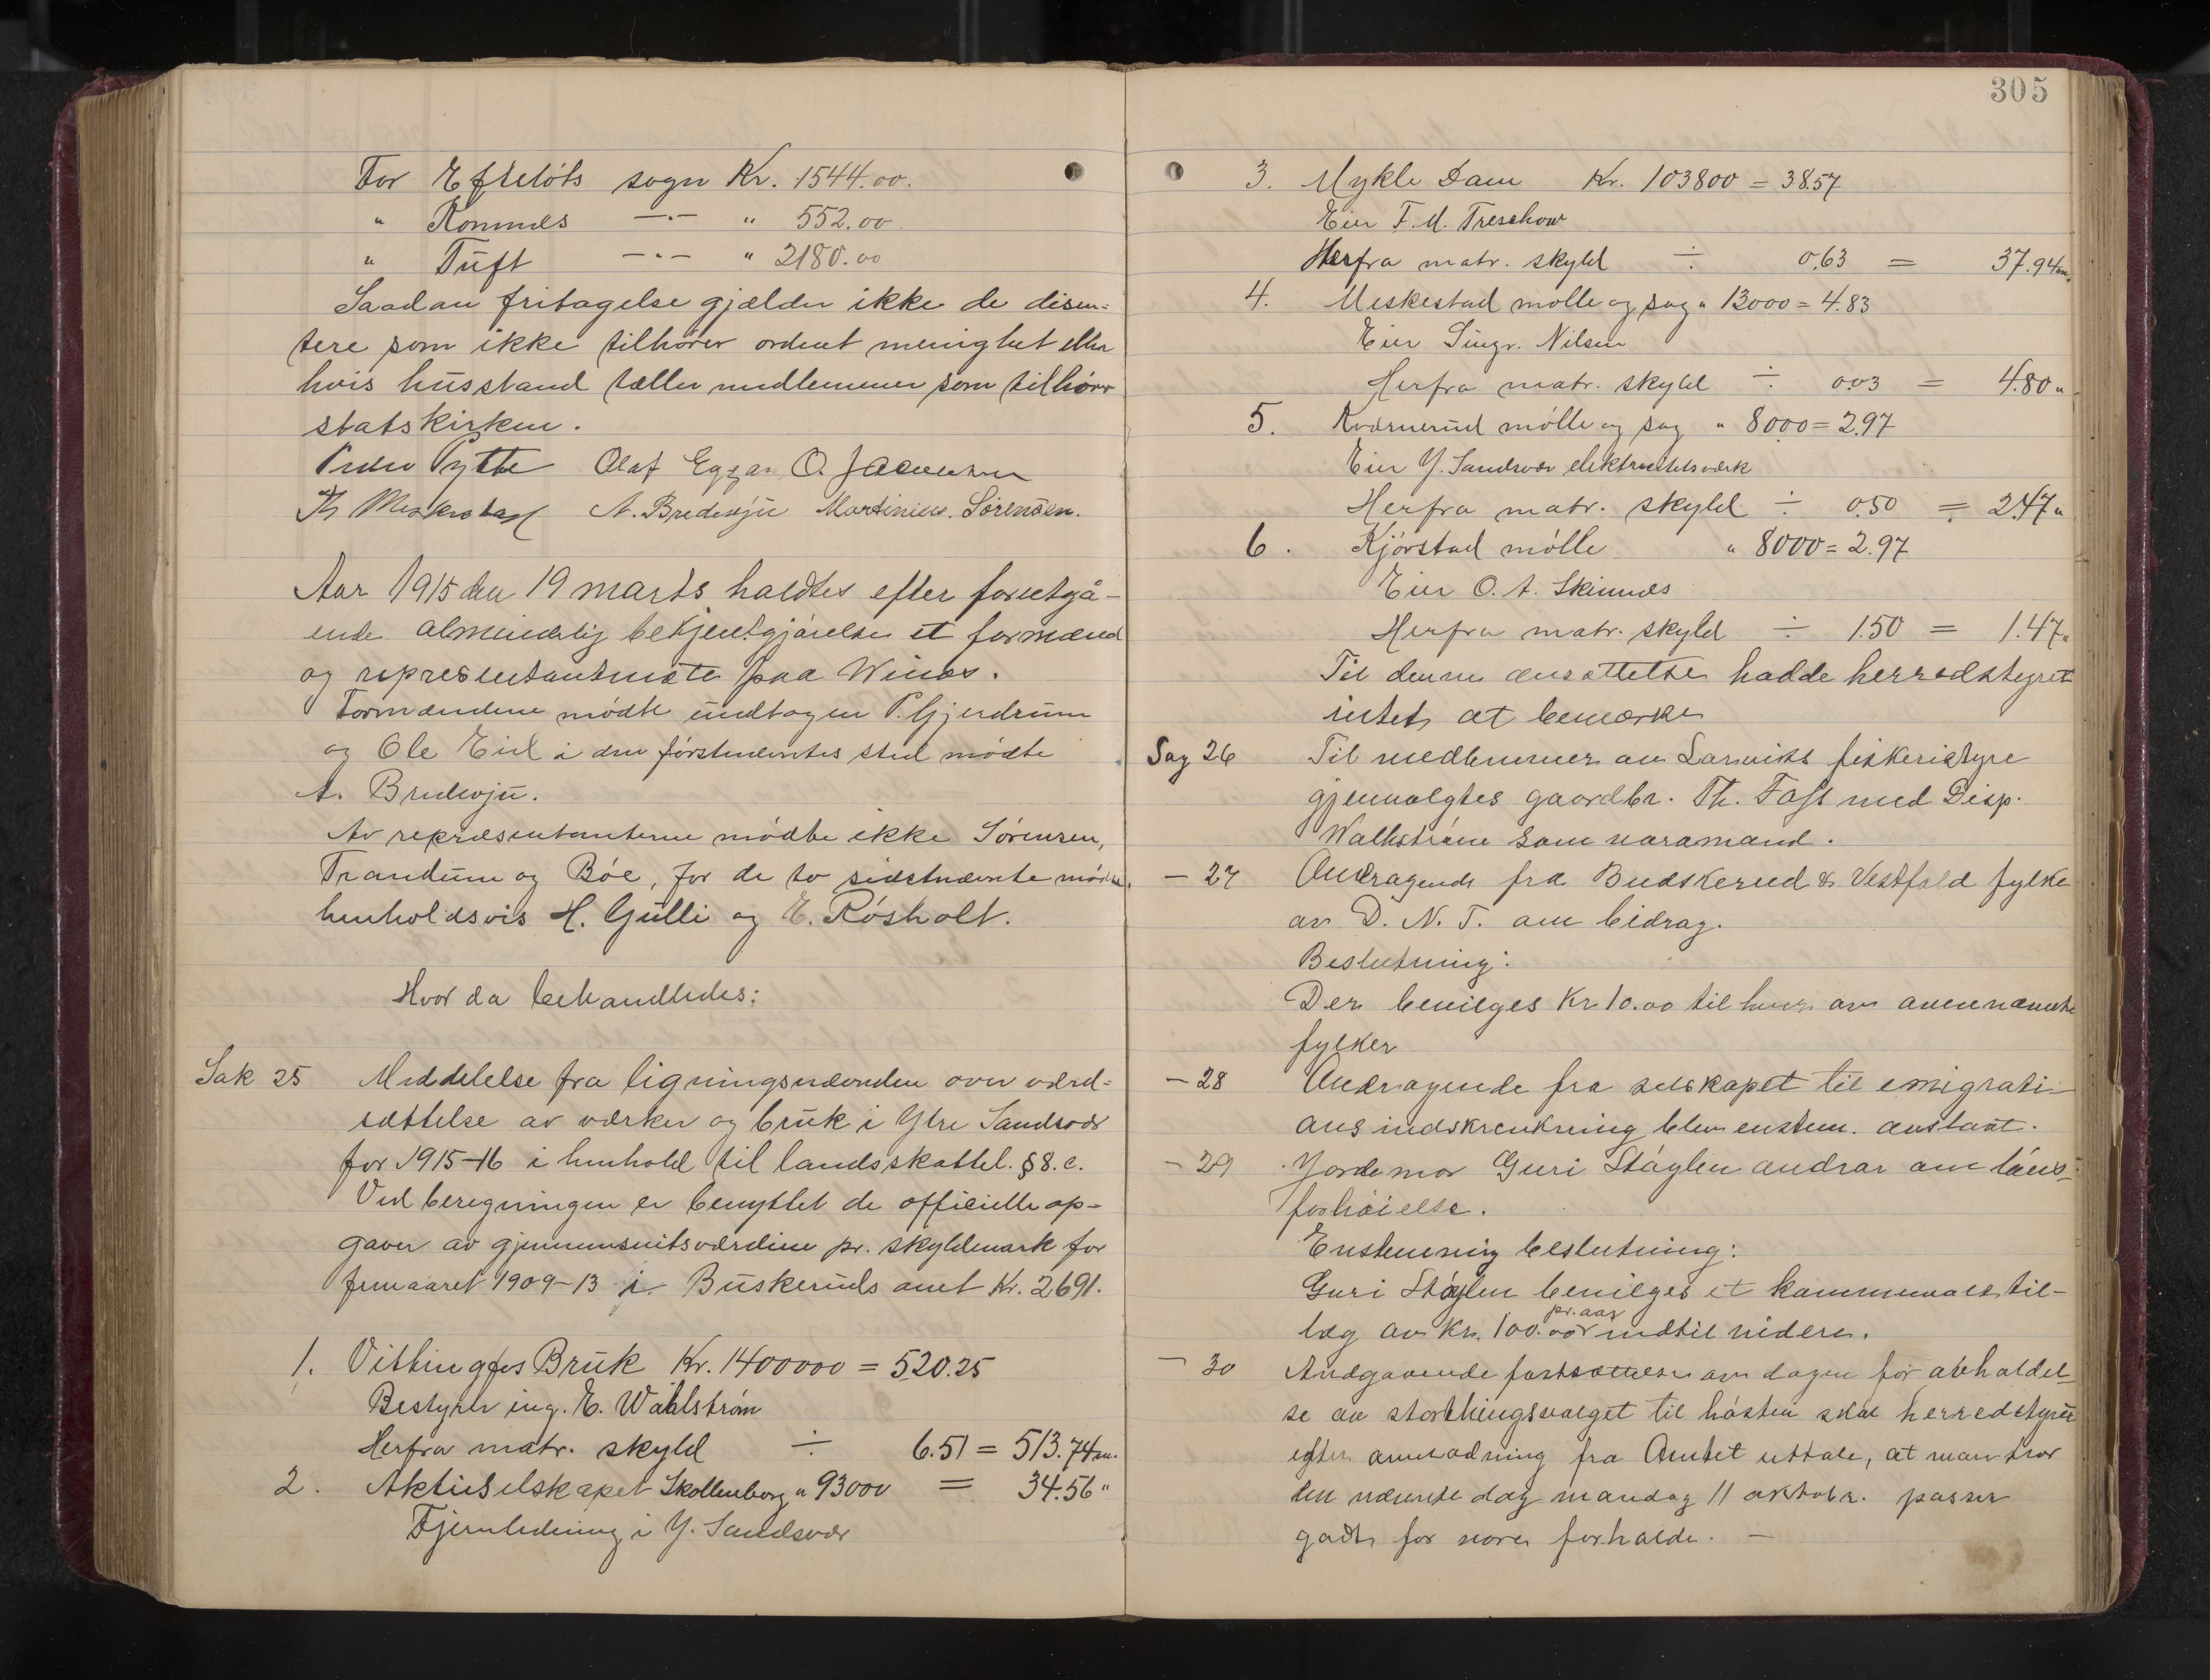 For Efteløts sogn Kr. 1544.00.
" Komnes —"— " 552.00.
" Tuft —"— " 2180.00
Saadan fritagelse gjælder ikke de disen-
tere som ikke tilhører ordent menighet eller
hvis husstand tæller medlemmer som tilhører
statskirken.
Olaf Eggar O. Jacobsen
A. Bredesju Martinius Sørensen.
Aar 1915 den 19 marts holdtes efter forutgå-
ende almindelig bekjentgjørelse et formænd
og representantmøte paa Winæs.
Formændene mødte undtagen P. Gjendrum
og Ole Eid i den førstnævntes sted mødte
A. Bredesju.
Av repræsentanterne mødte ikke Sørensen,
Trandum og Bøe, for de to sidstnævnte mødte
henholdsvis H. Gulli og E. Røsholt.
Hvor da behandledes:
Sak 25 Meddelelse fra ligningsnævnden over værd-
sættelse av værker og bruk i Ytre Sandsvær
for 1915-16 i henhold til landsskattel. § 8. c.
Ved beregningen er benyttet de officielle op-
gaver av gjennemsnitsværdien pr. skyldmark for
femaaret 1909-13 i Buskeruds amt Kr. 2691.
1. Vittingfos Bruk Kr. 1400000 = 520.25
Bestyrer ing. E. Wahlstrøm
Herfra matr. skyld ÷ 6.51 = 513.74 m.
2. Aktieselskapet Skollenborg " 93000 = 34.56 "
Fjernledning i Y. Sandsvær
305
3. Mykle Dam Kr. 103800 = 38.57
Eier F. M. Treschow
Herfra matr. skyld ÷ 0.63 = 37.94 m.
4. Meskestad mølle og sag " 13000 = 4.83
Eier Singv. Nilsen
Herfra matr. skyld ÷ 0.03 = 4.80 "
5. Kværnerud mølle og sag " 8000 = 2.97
Eier Y. Sandsvær elektricitetsværk
Herfra matr. skyld ÷ 0.50 = 2.47 "
6. Kjørstad mølle " 8000 = 2.97
Eier O. A. Skinnes
Herfra matr. skyld ÷ 1.50 = 1.47 "
Til denne ansættelse hadde herredstyret
intet at bemerke
Sag 26 Til medlemmer av Larviks fiskeristyre
gjenvalgtes gaardbr. Th. Foss med Disp.
Walhstrøm som varamand.
— 27 Andragende fra Budskerud & Vestfold fylke
av D. N. T. om bidrag.
Beslutning:
Der bevilges Kr 10.00 til hver av ovennævnte
fylker
— 28 Andragende fra selskapet til emigrati-
ons indskrenkning blev enstem. avslaat.
— 29 Jordemor Guri Støylen andrar om løns-
forhøielse.
Enstemmig beslutning:
Guri Støylen bevilges et kommunalt til-
læg av Kr. 100.00 pr. aar indtil videre.
— 30 Andgaaende fastsættelse av dagen for avholdel-
se av storthingsvalget til høsten skal herredstyret
efter anmodning fra Amtet uttale, at man tror
den nævnte dag mandag 11 oktobr. passer
godt for vore forholde. —